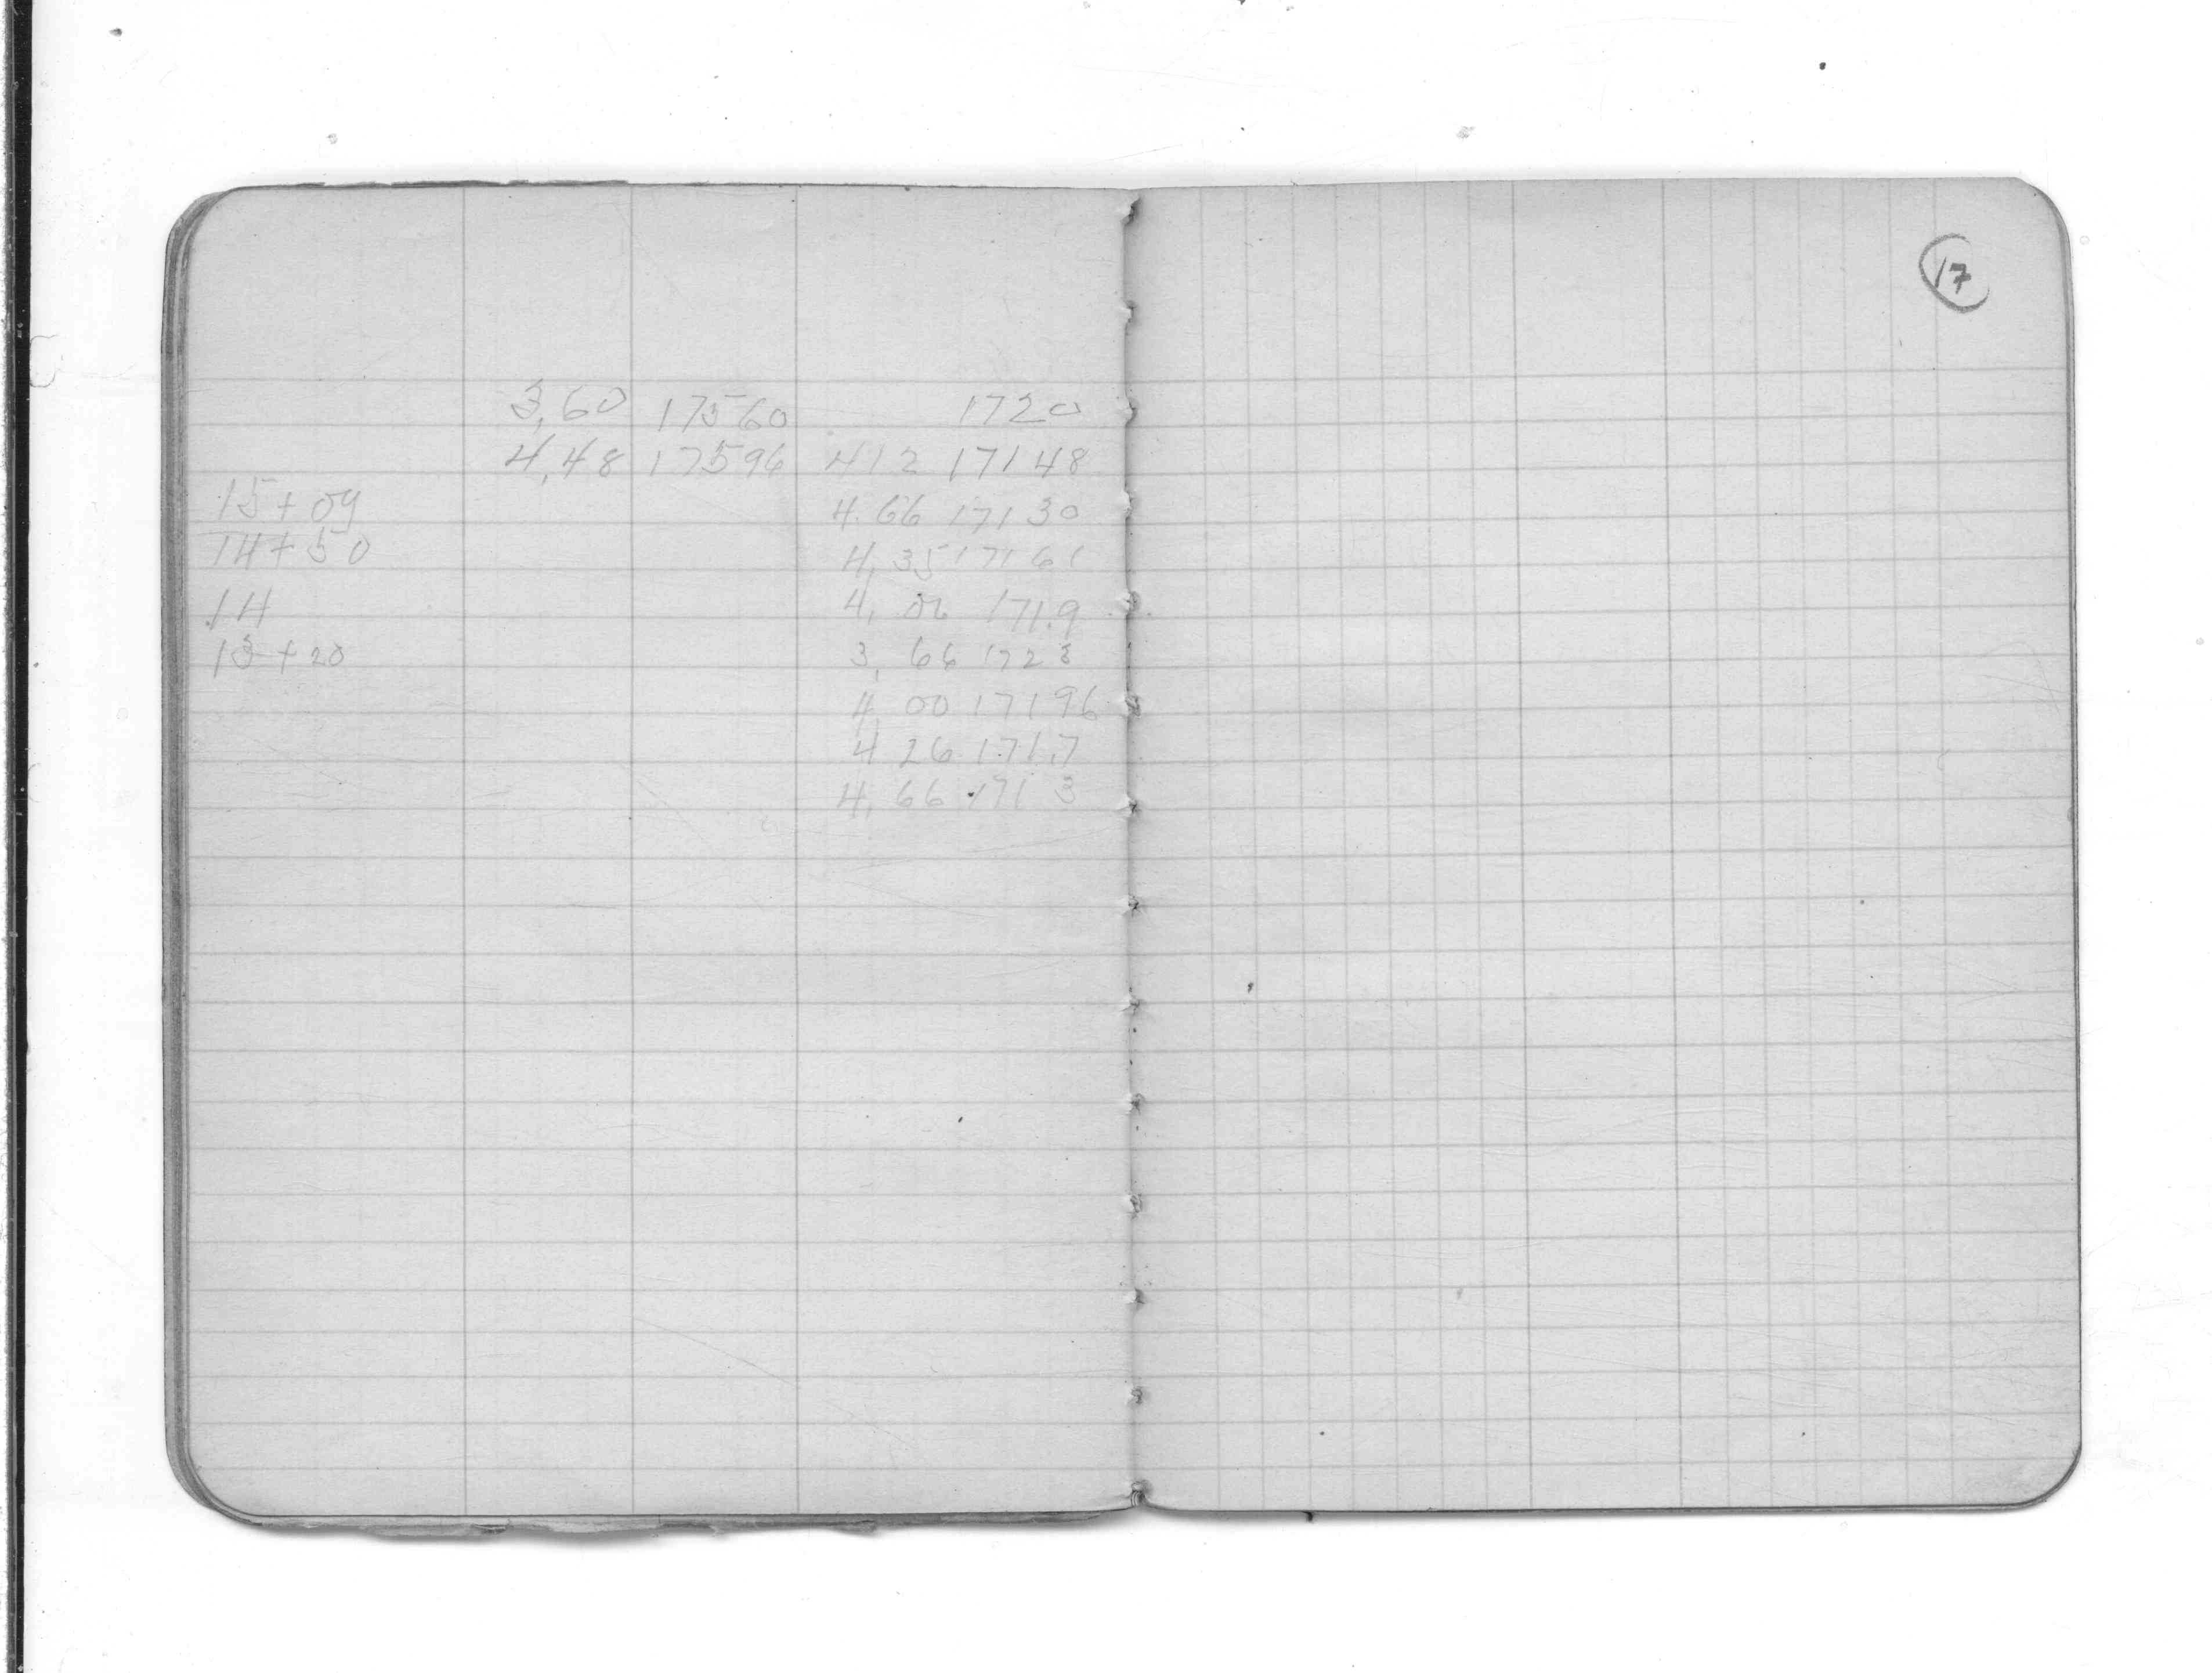 3,60 17560 1720
4,48 17596 412 17148
15+09 4.66 17130
14+50 4,35 17161
14 4, 06 171.9
13+20 3, 66 172 3
4, 00 17196
4 26 171.7
4, 66 171 3
17